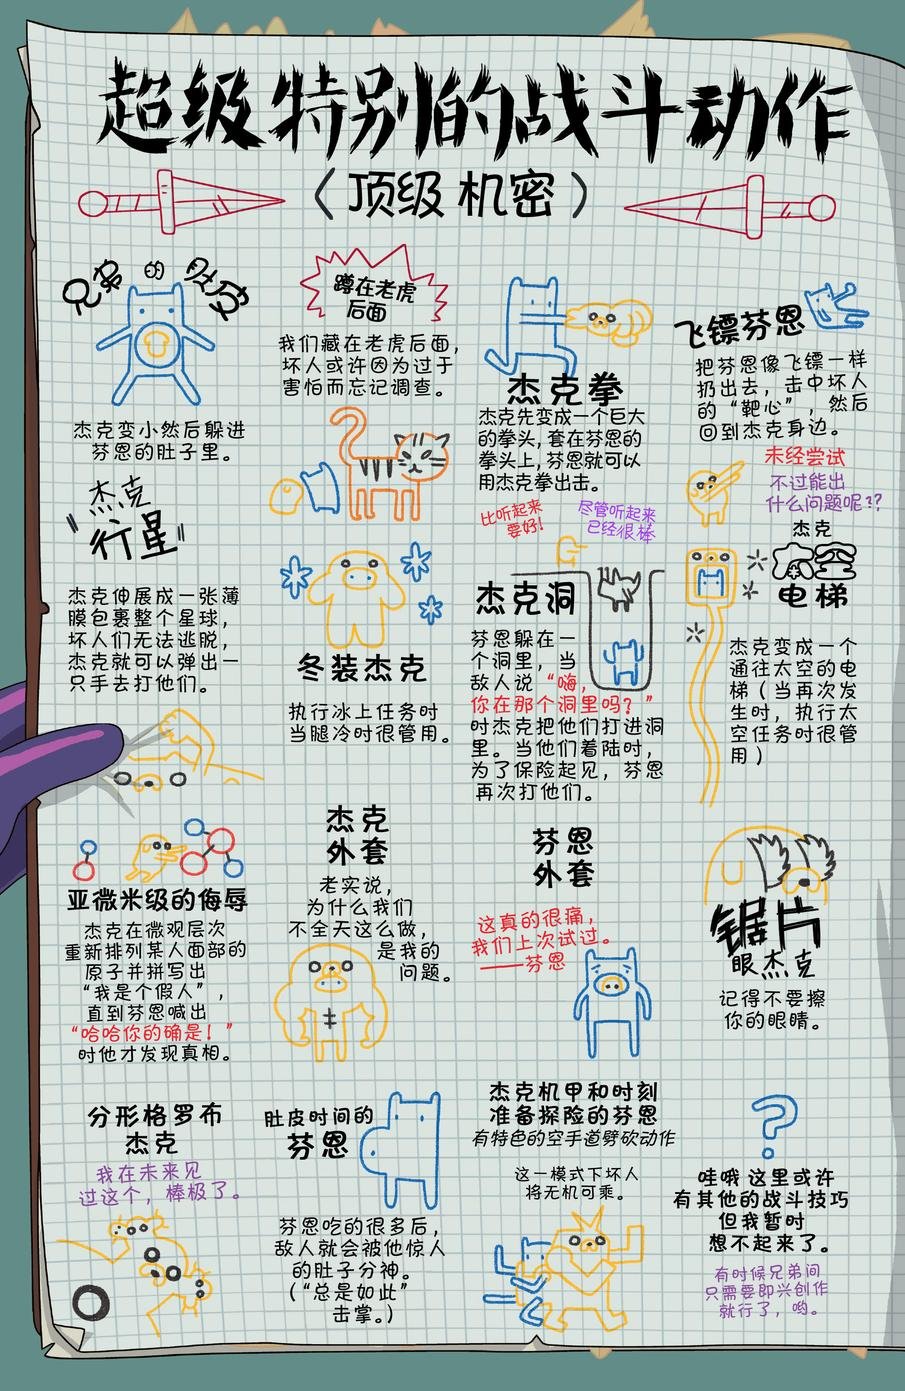 超级特别的战斗动作
〈顶级机密〉
兄弟的肚皮
杰克变小然后躲进
芬恩的肚子里。
蹲在老虎
后面
我们藏在老虎后面，
坏人或许因为过于
害怕而忘记调查。
杰克拳
杰克先变成一个巨大
的拳头，套在芬恩的
拳头上，芬恩就可以
用杰克拳出击。
比听起来
要好！
尽管听起来
已经很棒
飞镖芬恩
把芬恩像飞镖一样
扔出去，击中坏人
的“靶心”，然后
回到杰克身边。
未经尝试
不过能出
什么问题呢??
杰克
行星
杰克伸展成一张薄
膜包裹整个星球，
坏人们无法逃脱，
杰克就可以弹出一
只手去打他们。
冬装杰克
执行冰上任务时
当腿冷时很管用。
杰克洞
芬恩躲在一
个洞里，当
敌人说“嗨，
你在那个洞里吗？”
时杰克把他们打进洞
里。当他们着陆时，
为了保险起见，芬恩
再次打他们。
杰克
太空
电梯
杰克变成一个
通往太空的电
梯（当再次发
生时，执行太
空任务时很管
用）
亚微米级的侮辱
杰克在微观层次
重新排列某人面部的
原子并拼写出
“我是个假人”，
直到芬恩喊出
“哈哈你的确是！”
时他才发现真相。
杰克
外套
老实说，
为什么我们
不全天这么做，
是我的
问题。
芬恩
外套
这真的很痛，
我们上次试过。
——芬恩
锯片
眼杰克
记得不要擦
你的眼睛。
分形格罗布
杰克
我在未来见
过这个，棒极了。
肚皮时间的
芬恩
芬恩吃的很多后，
敌人就会被他惊人
的肚子分神。
（“总是如此”
击掌。）
杰克机甲和时刻
准备探险的芬恩
有特色的空手道劈砍动作
这一模式下坏人
将无机可乘。
?
哇哦 这里或许
有其他的战斗技巧
但我暂时
想不起来了。
有时候兄弟间
只需要即兴创作
就行了，哟。